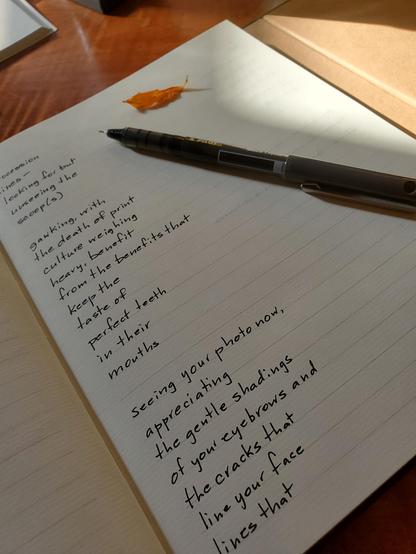 looking for but
unseeing the
seeep(s)
gawking, with
the death of print
culture weighing
heavy, benefit
from the benefits that
keep the
taste of
perfect teeth
in their
mouths
seeing your photo now,
appreciating
the gentle shadings
of your eyebrows and
the cracks that
line your face
lines that